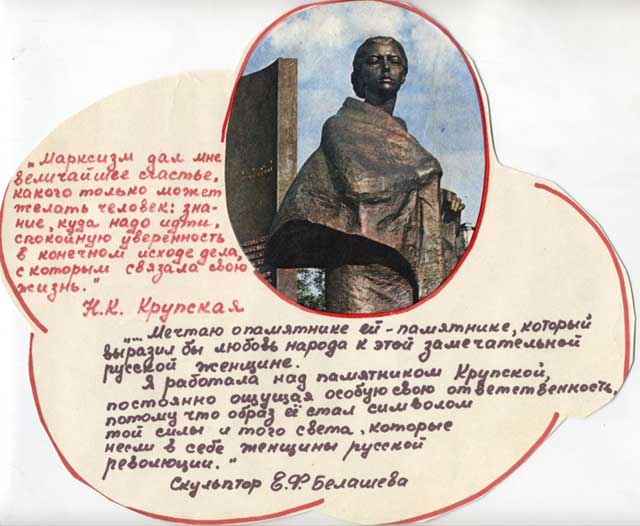 „Марксизм дал мне
величайшее счастье,
какого только может
желать человек: зна-
ние, куда надо идти,
спокойную уверенность
в конечном исходе дела,
с которым связала свою
жизнь."
Н.К. Крупская
„... Мечтаю о памятнике ей - памятнике, который
выразил бы любовь народа к этой замечательной
русской женщине.
Я работала над памятником Крупской,
постоянно ощущая особую свою ответственность,
потому что образ её стал символом
той силы и того света, которые
несли в себе женщины русской
революции."
Скульптор Е.Ф. Белашева